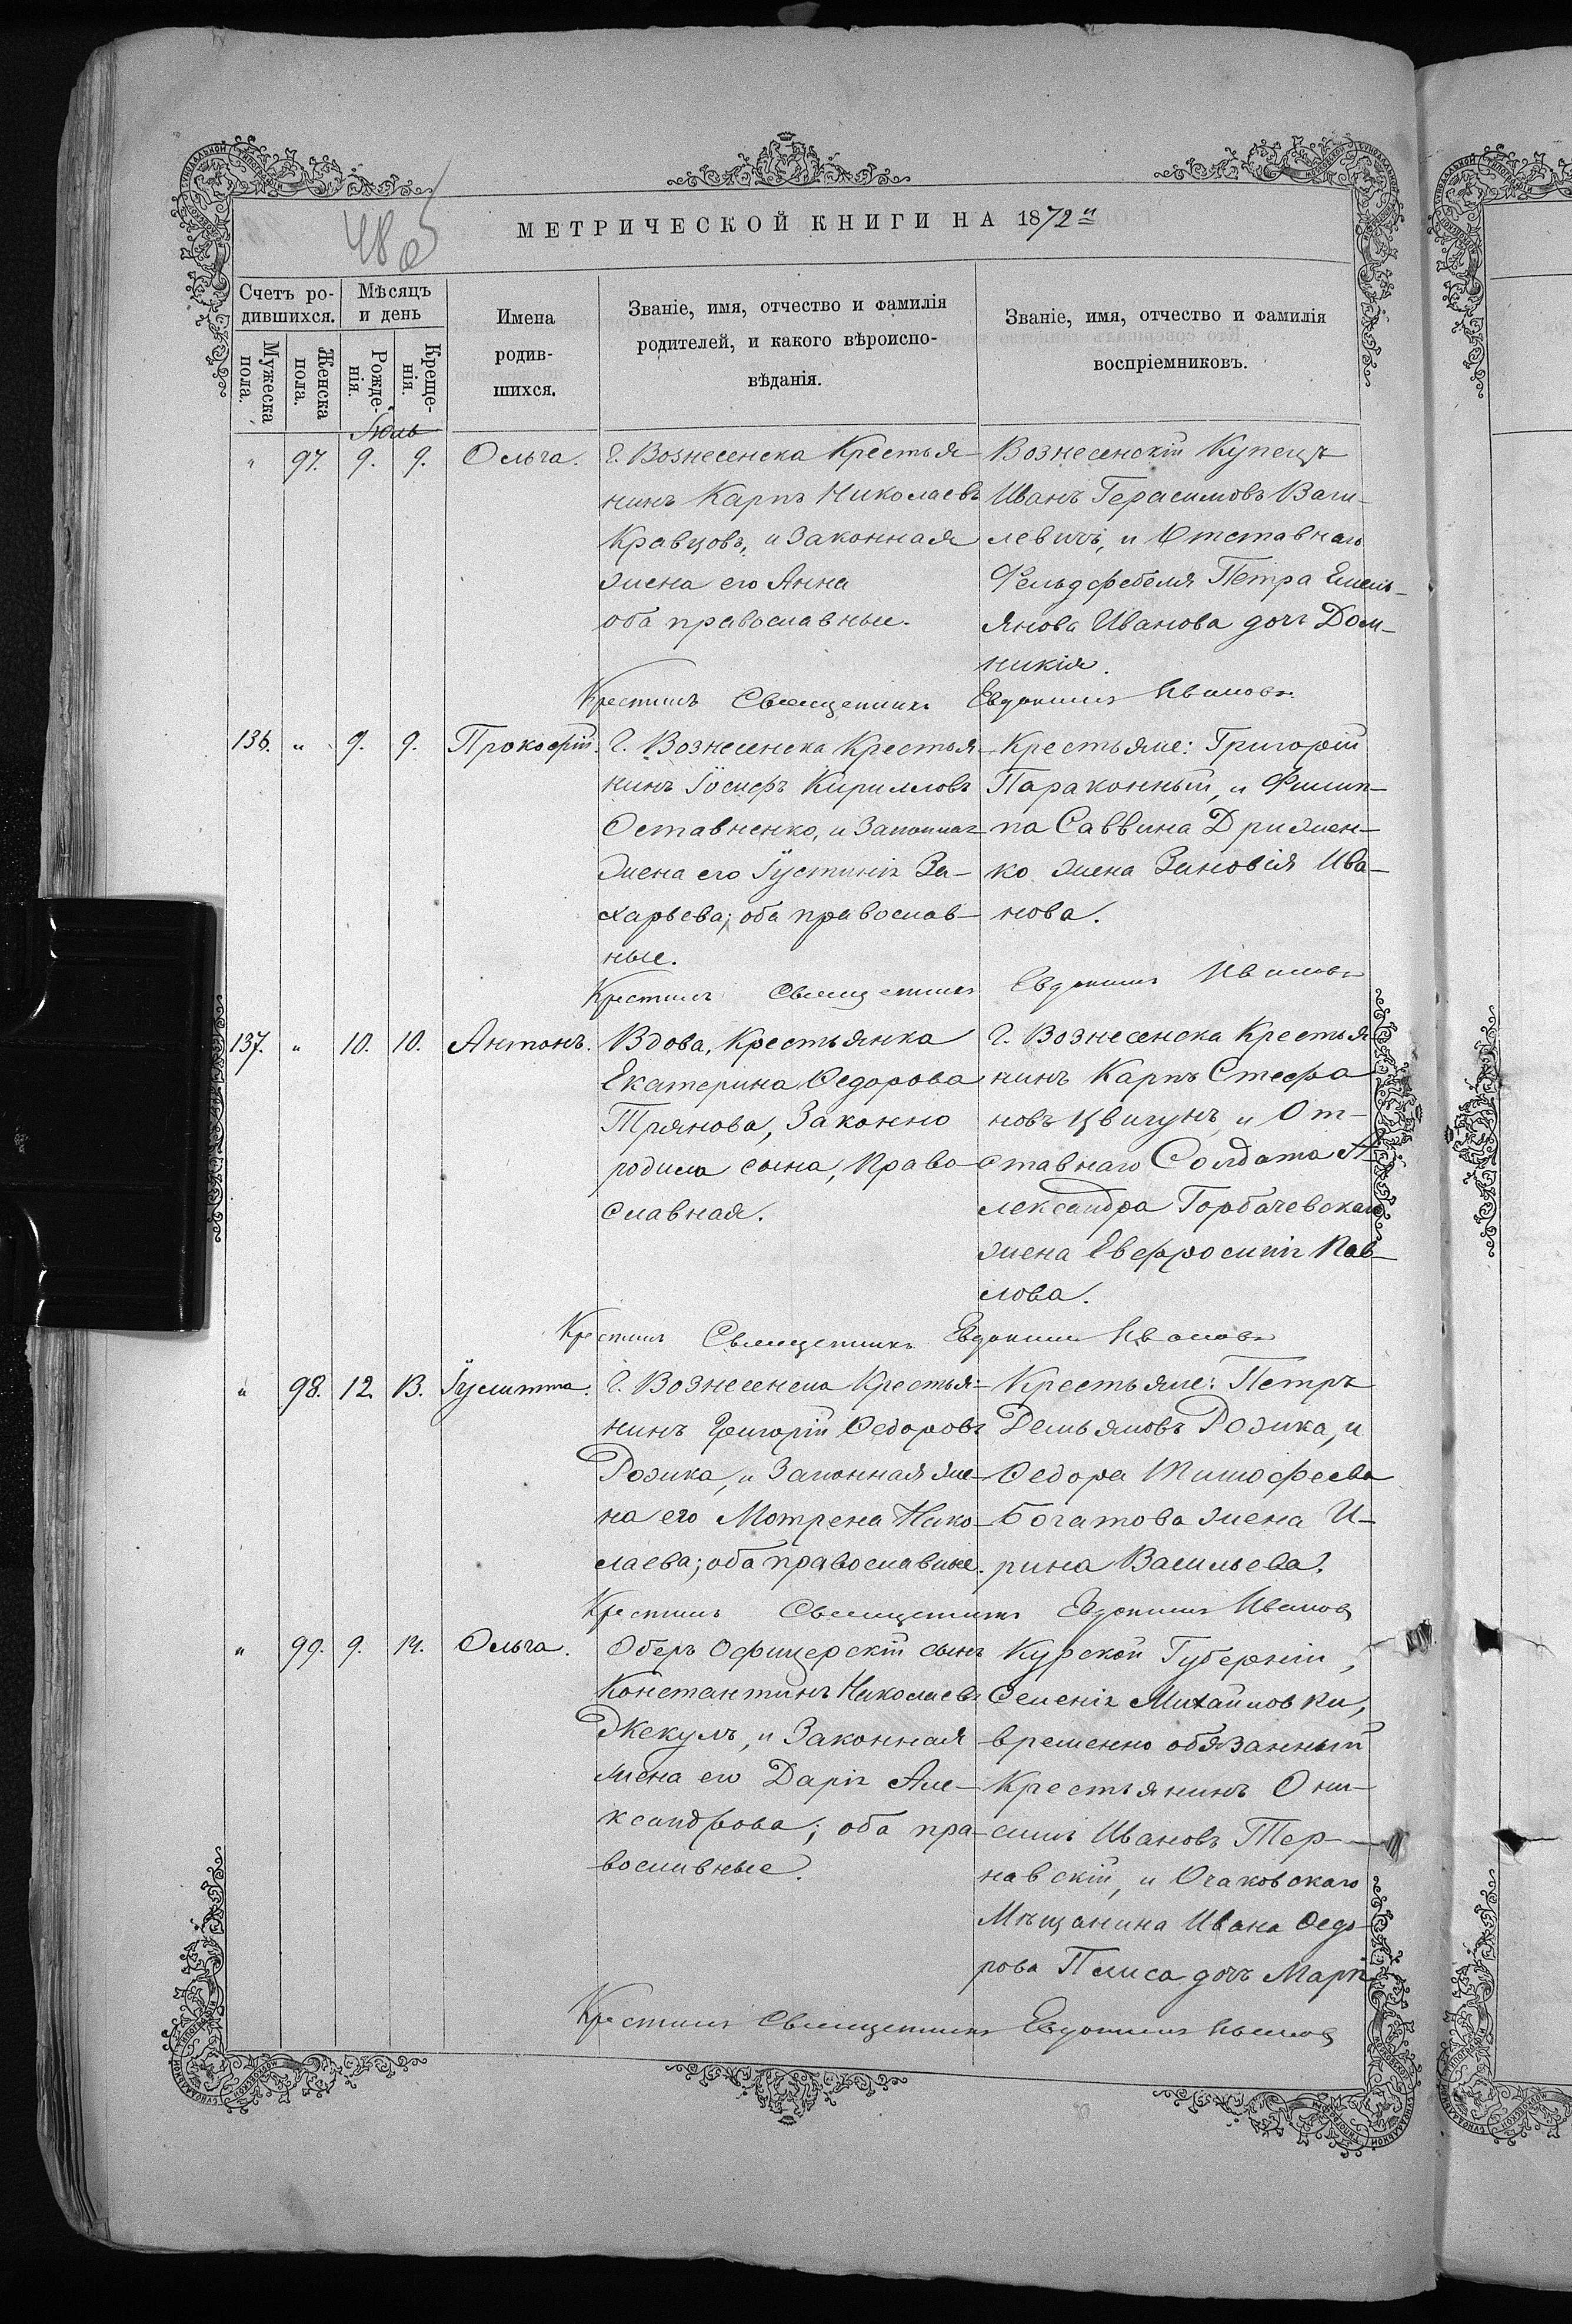 48 об
МЕТРИЧЕСКОЙ КНИГИ НА 1872й
Счетъ ро-
дившихся.
Мужеска пола.
Женска пола.
Мѣсяцъ
и день
Рожде-
нія.
Креще-
нія.
Имена
родив-
шихся.
Званіе, имя, отчество и фамилія
родителей, и какого вѣроиспо-
вѣданія.
Званіе, имя, отчество и фамилія
воспріемниковъ.
Іюль
" 97. 9. 9. Ольга.
Г. Вознесенска Крестья-
нинъ Карпъ Николаевъ
Кравцовъ, и Законная
жена его Анна
оба православные.
Вознесенскій Купецъ
Иванъ Герасимовъ Васи-
левичъ, и Отставнаго
Фельдфебеля Петра Емель-
янова Иванова дочь Дом-
никія.
Крестилъ Священникъ Евдокимъ Ивановъ
136. " 9. 9. Прокофій.
Г. Вознесенска Крестья-
нинъ Іосифъ Кирилловъ
Оставненко, и Законная
жена его Іустинія За-
харьева; оба православ-
ные.
Крестьяне: Григорій
Параконный, и Филип-
па Саввина Дрижен-
ко жена Зиновія Ива-
нова.
Крестилъ Священникъ Евдокимъ Ивановъ
137. " 10. 10. Антонъ.
Вдова, Крестьянка
Екатерина Ѳедорова
Троянова, Законно
родила сына, Право-
славная.
Г. Вознесенска Крестья-
нинъ Карпъ Стефа
новъ Цвигунъ, и От-
ставнаго Солдата А-
лександра Горбачевскаго
жена Евфросинія Пав-
лова.
Крестилъ Священникъ Евдокимъ Ивановъ
" 98. 12. 13. Іулитта.
Г. Вознесенска Крестья-
нинъ Григорій Ѳедоровъ
Рожка, и Законная же-
на его Мотрена Нико-
лаева; оба православные.
Крестьяне: Петръ
Демьяновъ Рожка, и
Ѳедора Тимофеева
Богатова жена И-
рина Васильева.
Крестилъ Священникъ Евдокимъ Ивановъ
" 99. 9. 14. Ольга.
Оберъ Офицерскій сынъ
Константинъ Николаевъ
Джекулъ, и Законная
жена его Дарія Але-
ксандрова; оба пра-
вославные.
Курской Губерніи,
Селенія Михайловки,
временно обязанный
Крестьянинъ Они-
симъ Ивановъ Тер-
навскій, и Очаковскаго
Мѣщанина Ивана Ѳедо-
рова Плиса дочь Марія
Крестилъ Священникъ Евдокимъ Ивановъ